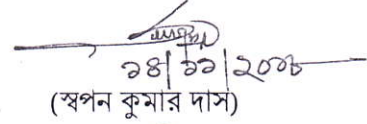 ১৪|১১|২০১৮
(স্বপন কুমার দাস)